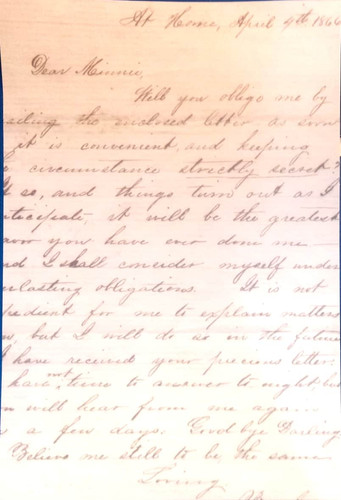 At Home, April 9th 186
Dear Minnie,
Will you oblige me by
ailing the enclosed letter as soon
it is convenient, and keeping
e circumstance strictly secret?
so, and things turn out as I
nticipate, it will be the greatest
you have ever done me
nd I shall concider myself under
erlasting obligations. It is not
pedient for me to explain matters
but I will do so in the future
I have received your precious letter.
have not time to answer to night, but
will hear from me again
a few days. Good bye Darling
Believe me still to be the same
Loving